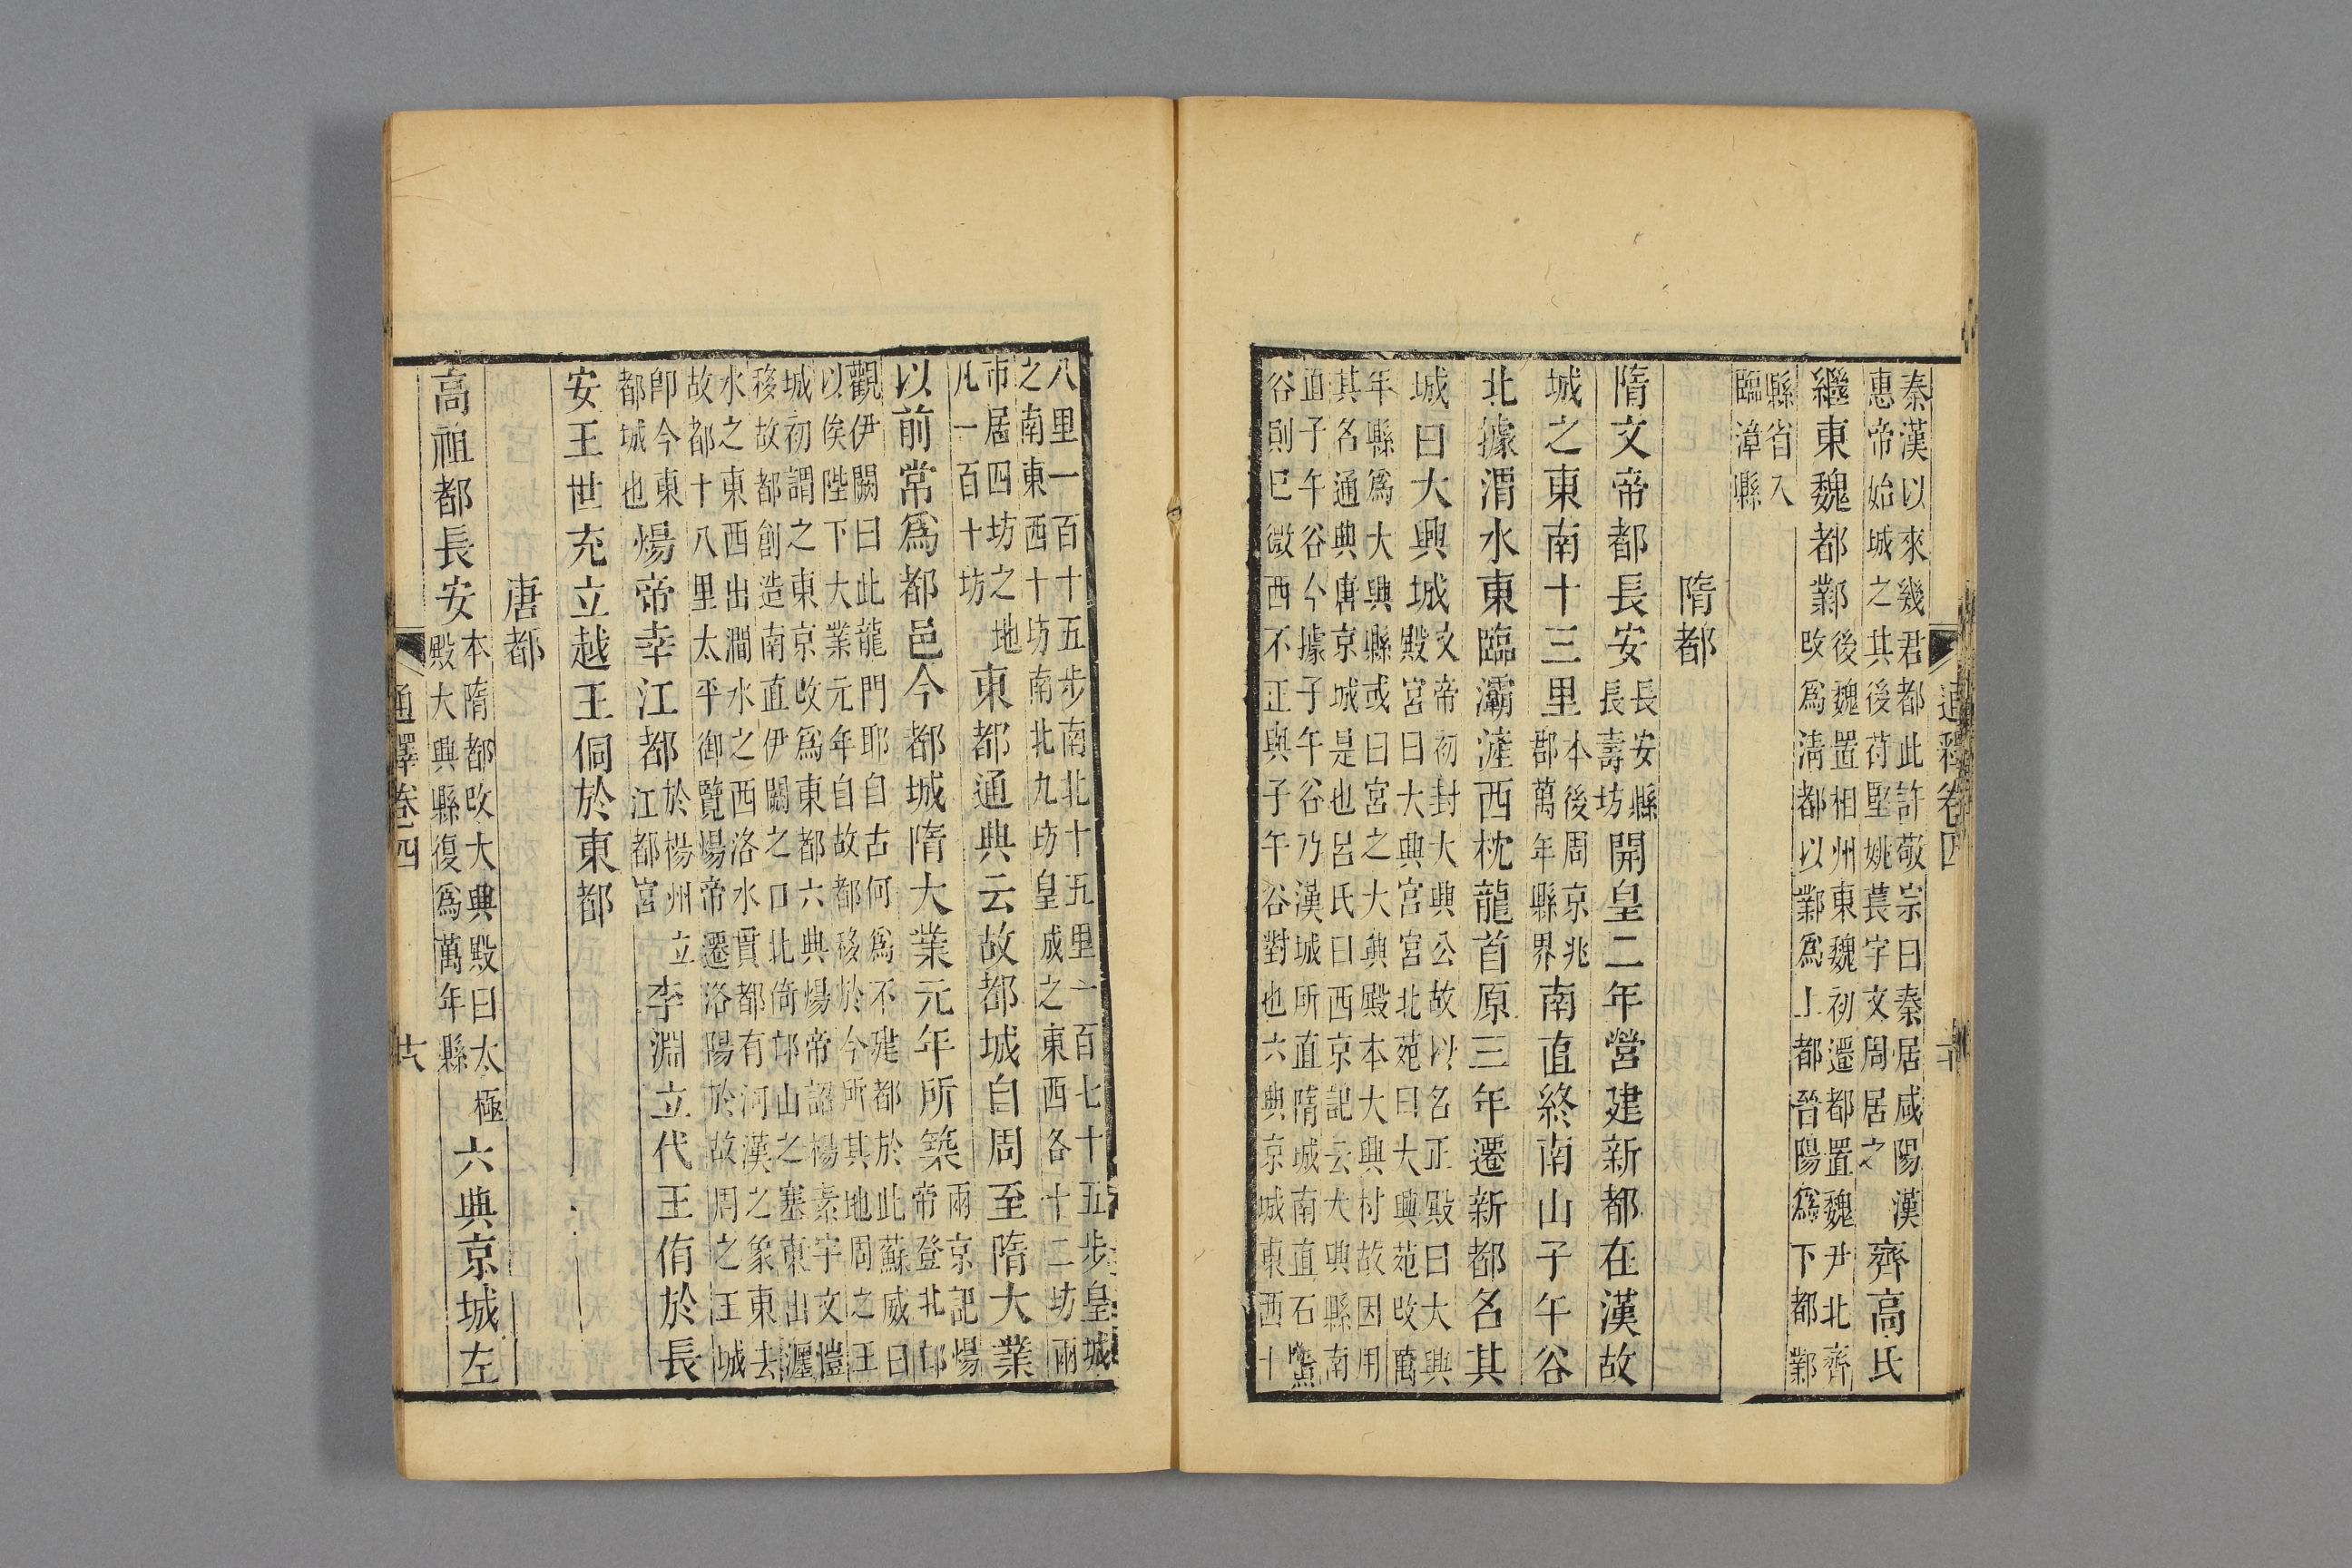 秦漢以來幾君都此許敬宗曰秦居咸陽漢
惠帝始城之其後苻堅姚萇宇文周居之
齊高氏
繼東魏都鄴
後魏置相州東魏初遷都置魏尹北齊
改爲清都以鄴爲上都晉陽爲下都鄴
縣省入
臨漳縣
隋都
隋文帝都長安
長安縣
長壽坊
開皇二年營建新都在漢故
城之東南十三里
本後周京兆
郡萬年縣界
南直終南山子午谷
北據渭水東臨灞滻西枕龍首原三年遷新都名其
城曰大興城
文帝初封大興公故以名正殿曰大興
殿宮曰大興宮宮北苑曰大興苑改萬
年縣爲大興縣或曰宮之大興殿本大興村故因用
其名通典唐京城是也呂氏曰西京記云大興縣南
直子午谷今據子午谷乃漢城所直隋城南直石鱉
谷則已微西不正與子午谷對也六典京城東西十
通釋卷四
八里一百十五步南北十五里一百七十五步皇城
之南東西十坊南北九坊皇城之東西各十二坊兩
市居四坊之地
凡一百十坊
東都通典云故都城自周至隋大業
以前常爲都邑今都城隋大業元年所築
兩京記煬
帝登北邙
觀伊闕曰此龍門耶自古何爲不建都於此蘇威曰
以俟陛下大業元年自故都移於今所其地周之王
城初謂之東京改爲東都六典煬帝詔楊素宇文愷
移故都創造南直伊闕之口北倚邙山之塞東出瀍
水之東西出澗水之西洛水貫都有河漢之象東去
故都十八里太平御覽煬帝遷洛陽於故周之王城
卽今東
都城也
煬帝幸江都
於楊州立
江都宮
李淵立代王侑於長
安王世充立越王侗於東都
唐都
高祖都長安
本隋都改大興殿曰太極
殿大興縣復爲萬年縣
六典京城左
通釋卷四
十六